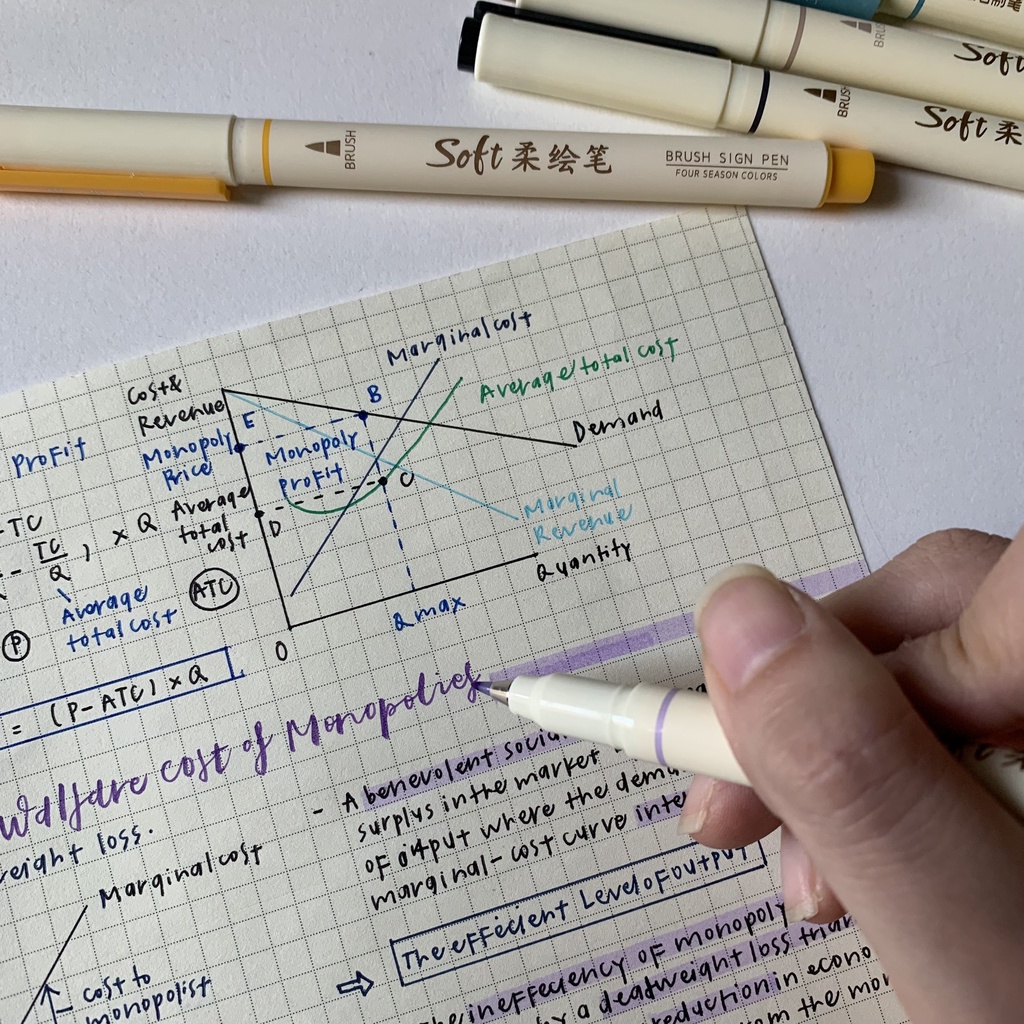 BRUSH
Soft 柔绘笔
BRUSH SIGN PEN
FOUR SEASON COLORS
BRUSH
Soft
BRUSH
Soft 柔
Cost &
Revenue
Marginal cost
Average total cost
Demand
Marginal
Revenue
Quantity
Monopoly
Price
E
B
Monopoly
profit
C
D
Average
total
cost
ATC
0
Qmax
Profit
-TC
- TC/Q ) × Q
Average
total cost
P
= (P-ATC) × Q
Walfare cost of Monopolies
eight loss.
Marginal cost
cost to
monopolist
- A benevolent socia
surplus in the market
of output where the dem
marginal-cost curve inte
⇨ The effecient Level of output
ineffeciency of monopoly
a deadweight loss than
reduction in econo
from the mo